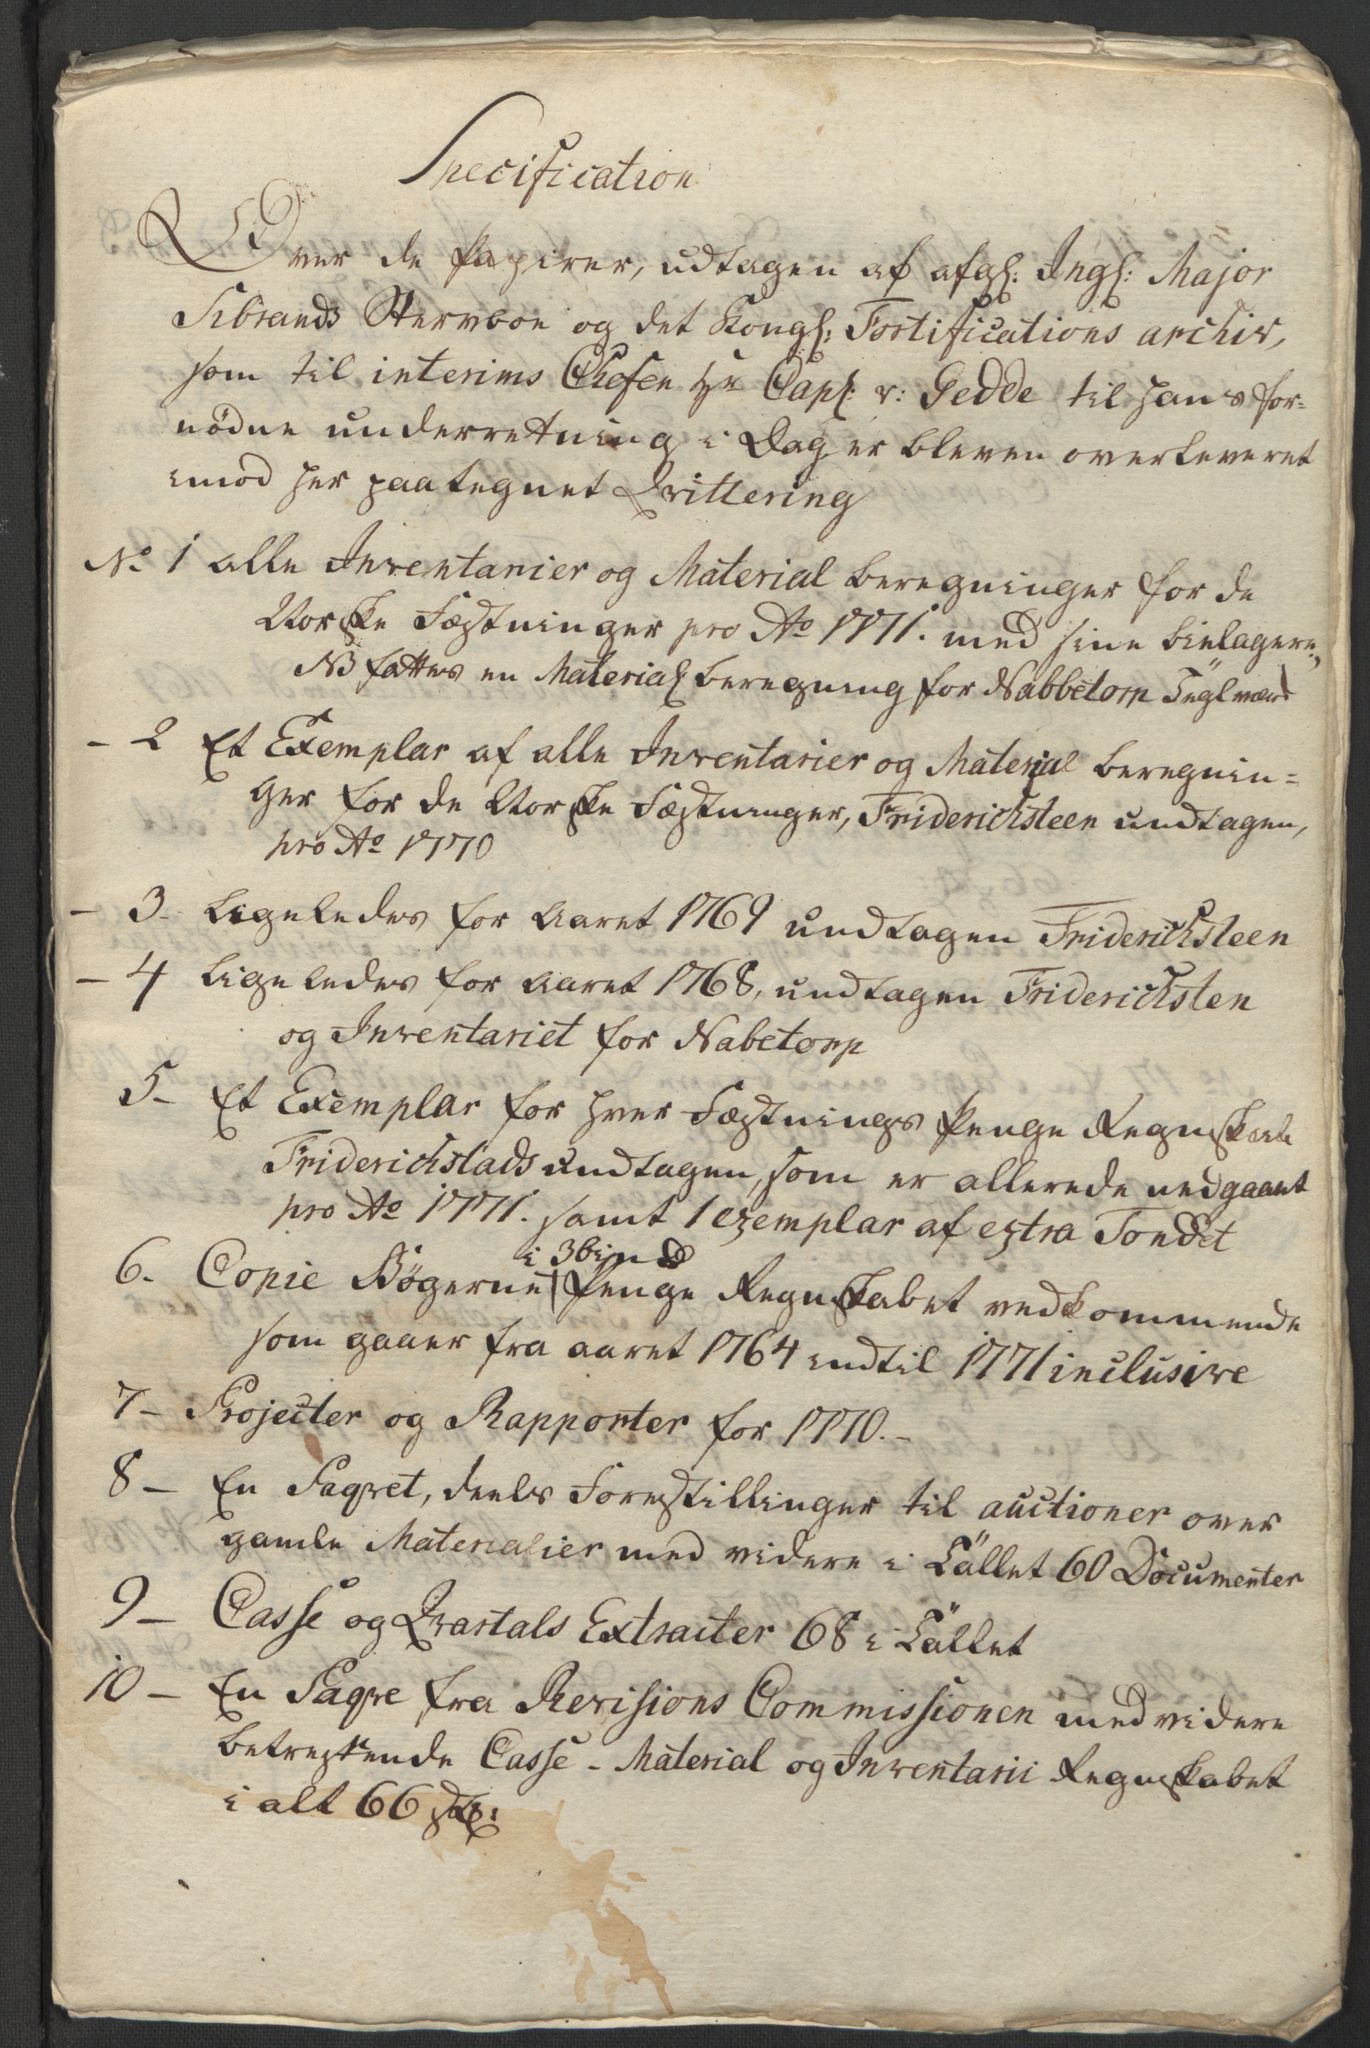 Specification
Over de Papirer, udtagen af afgl: Ingl: Major
Sibrands Stervboe og det Kongl: Fortifications archiv,
som til interims Chefen Hr Capt: v: Gedde til hans for-
nødne underretning i Dag er bleven overleveret
imod her paategnet Qvittering
No 1 alle Inventarier og Material beregninger for de
Norske Fæstninger pro Ao 1771. med sine bielagere,
NB fattes en Material beregning for Nabbetorp Teglværk
- 2 Et Exemplar af alle Inventarier og Material beregnin-
ger for de Norske Fæstninger, Friderichsteen undtagen,
pro Ao 1770
- 3- Ligeledes for Aaret 1769 undtagen Friderichsteen
- 4 Ligeledes for Aaret 1768, undtagen Friderichsten
og Inventariet for Nabetorp
5- Et Exemplar for hver Fæstnings Penge Regnskab
Friderichstads undtagen, som er allerede nedgaaet
pro Ao 1771. samt 1 exemplar af extra Fondet
i 3 bind
6. Copie Bøgerne Penge Regnskabet vedkommende
som gaaer fra aaret 1764 indtil 1771 inclusive
7- Projecter og Rapporter for 1770.-
8- En Paqvet, deels Forestillinger til auctioner over
gamle Materialier med videre i Tallet 60 Documenter
9- Casse og Qvartals Extracter 68 i Tallet
10- En Paqve fra Revisions Commissionen med videre
betreffende Casse - Material og Inventarii Regnskabet
i alt 66 st: